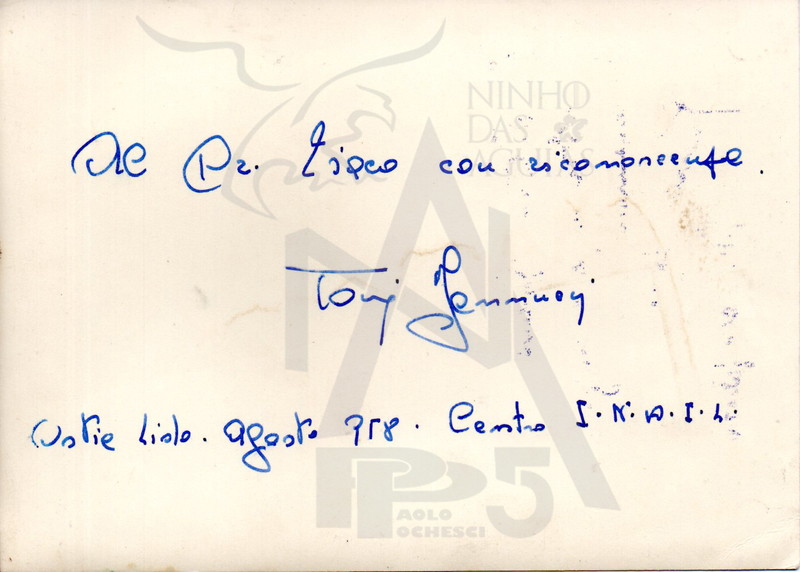 NINHO
DAS
AGUIAS
Al Dr. con riconoscenza.
Tony
Ostia Lido. Agosto 958. Centro I.N.A.I.L.
PP5
PAOLO
POCHESCI